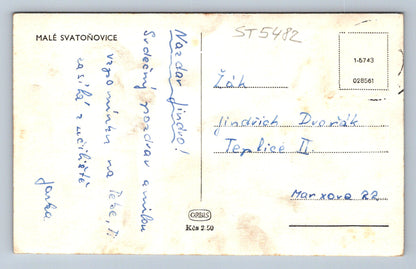 MALÉ SVATOŇOVICE
ST5482
1-5743
028561
Nazdar Jindro!
Srdečný pozdrav a milou
vzpomínku na Tebe, Ti
zasílá z učiliště
Jarka.
Žák
Jindřich Dvořák
Teplice II.
Marxova 22
ORBIS
Kčs 2.50